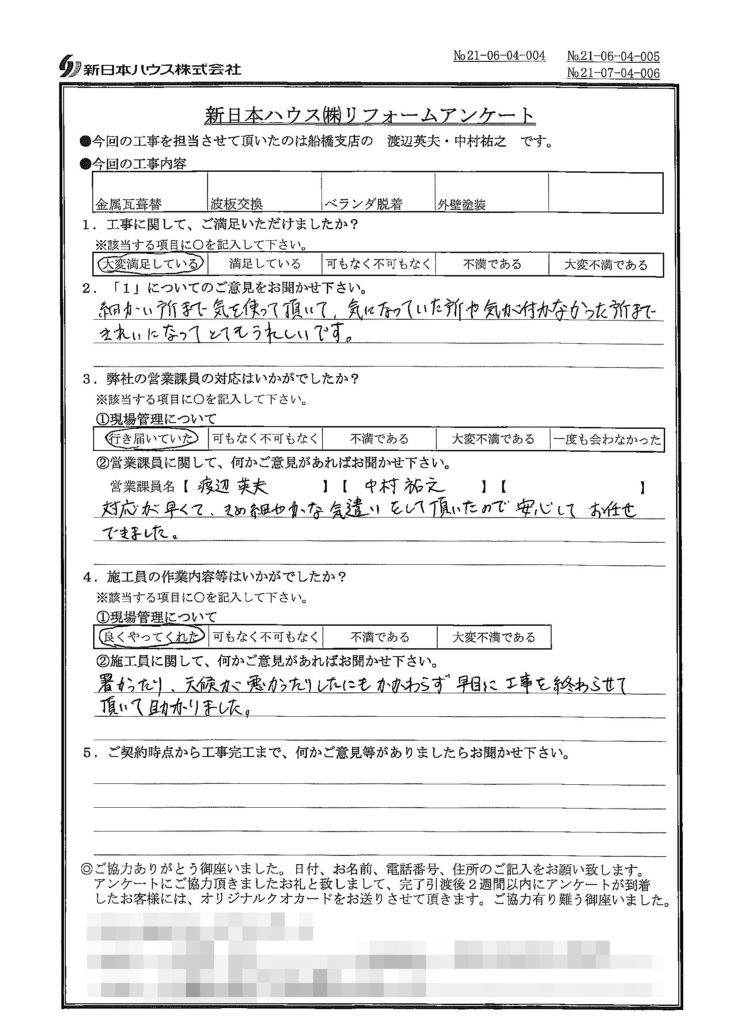 新日本ハウス株式会社
№21-06-04-004 №21-06-04-005
№21-07-04-006
新日本ハウス㈱リフォームアンケート
●今回の工事を担当させて頂いたのは船橋支店の 渡辺英夫・中村祐之 です。
●今回の工事内容
金属瓦葺替 波板交換 ベランダ脱着 外壁塗装
1．工事に関して、ご満足いただけましたか？
※該当する項目に○を記入して下さい。
大変満足している 満足している 可もなく不可もなく 不満である 大変不満である
2．「1」についてのご意見をお聞かせ下さい。
細かい所まで気を使って頂いて、気になっていた所や気が付かなかった所まで
きれいになってとてもうれしいです。
3．弊社の営業課員の対応はいかがでしたか？
※該当する項目に○を記入して下さい。
①現場管理について
行き届いていた 可もなく不可もなく 不満である 大変不満である 一度も会わなかった
②営業課員に関して、何かご意見があればお聞かせ下さい。
営業課員名【 渡辺 英夫 】【 中村 祐之 】【 】
対応が早くて、きめ細やかな気遣いをして頂いたので安心してお任せ
できました。
4．施工員の作業内容等はいかがでしたか？
※該当する項目に○を記入して下さい。
①現場管理について
良くやってくれた 可もなく不可もなく 不満である 大変不満である
②施工員に関して、何かご意見があればお聞かせ下さい。
暑かったり、天候が悪かったりしたにもかかわらず早目に工事を終わらせて
頂いて助かりました。
5．ご契約時点から工事完工まで、何かご意見等がありましたらお聞かせ下さい。
◎ご協力ありがとう御座いました。日付、お名前、電話番号、住所のご記入をお願い致します。
アンケートにご協力頂きましたお礼と致しまして、完了引渡後２週間以内にアンケートが到着
したお客様には、オリジナルクオカードをお送りさせて頂きます。ご協力有り難う御座いました。